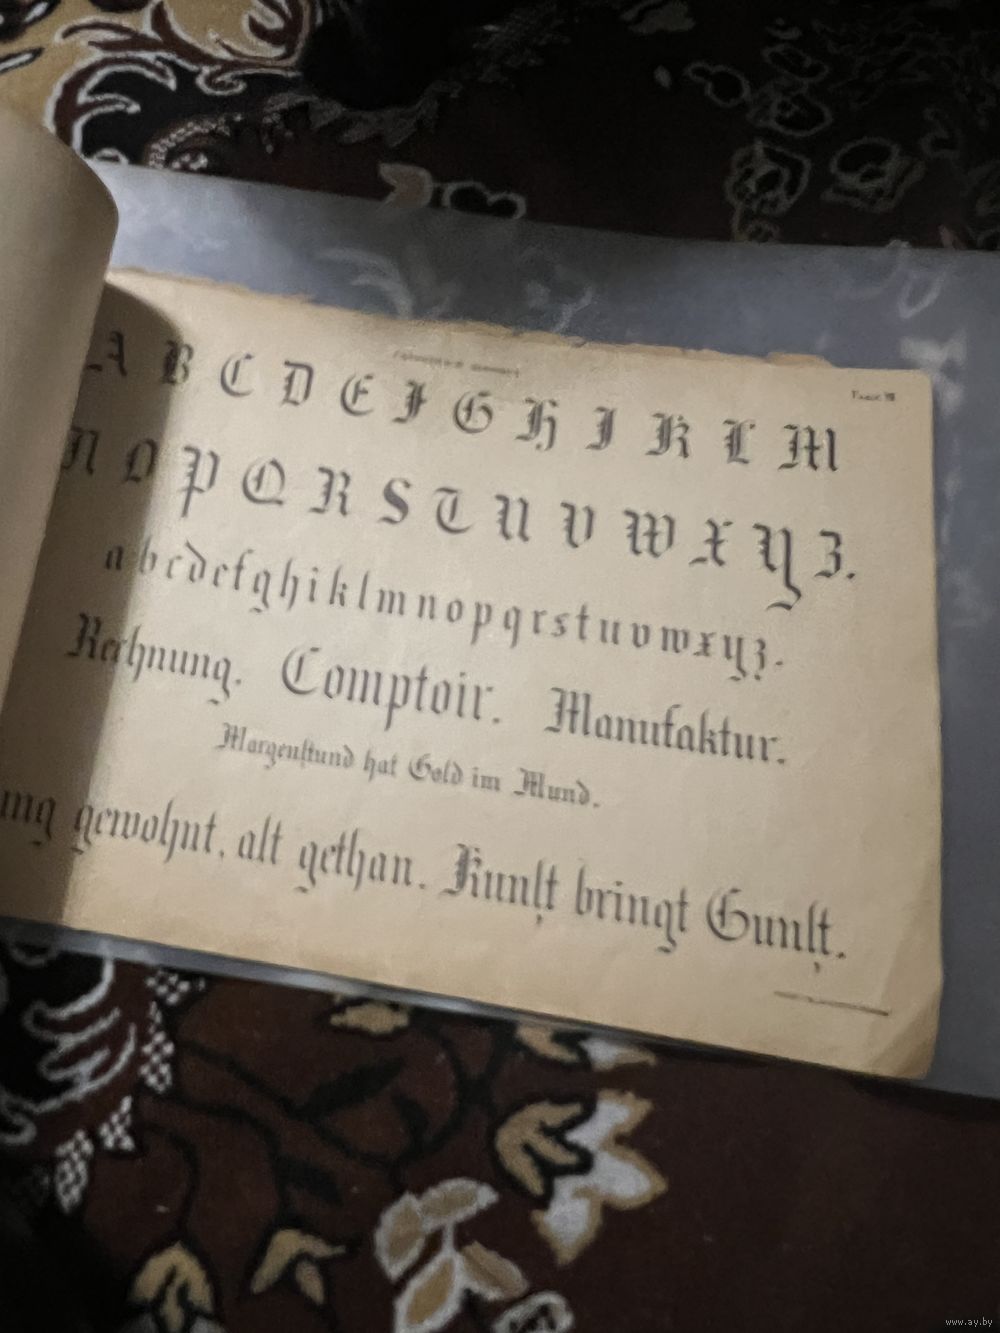 A B C D E F G H I K L M
N O P Q R S T U V W X Y Z.
a b c d e f g h i k l m n o p q r s t u v w x y z.
Rechnung. Comptoir. Manufaktur.
Morgenstund hat Gold im Mund.
gewohnt, alt gethan. Kunst bringt Gunst.
www.ay.by